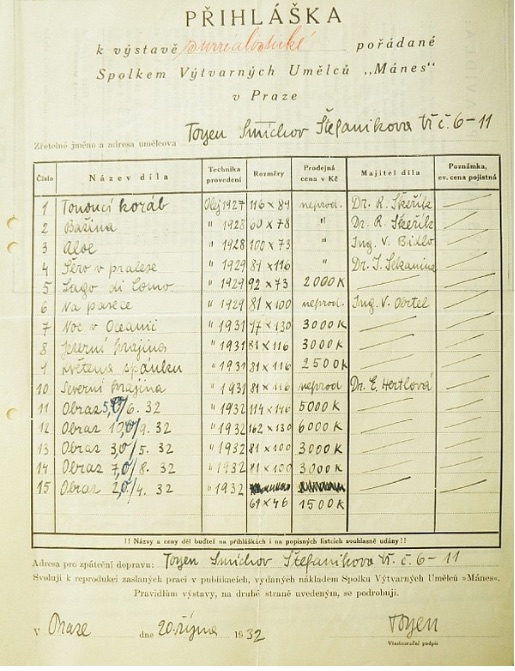 PŘIHLÁŠKA
k výstavě surrealistické pořádané
Spolkem Výtvarných Umělců „Mánes“
v Praze
Zřetelné jméno a adresa umělcova Toyen Smíchov Štefanikova tř č. 6-11
Číslo Název díla Technika provedení Rozměry Prodejná cena v Kč Majitel díla Poznámka, ev. cena pojistná
1 Tonoucí koráb Olej 1927 116 x 89 neprod. Dr. R. Škeřík
2 Bažina " 1928 60 x 78 " Dr. R. Škeřík
3 Aloe " 1928 100 x 73 " Ing. V. Bidlo
4 Šero v pralese " 1929 x 116 " Dr.
5 Lago di Como " 1929 92 x 73 2000 K
6 Na pasece " 1929 81 x 100 neprod. Ing. V. Obrtel
7 Noc v Oceanii " 1931 77 x 130 3000 K
8 Jezerní krajina " 1931 81 x 116 3000 K
9 Květena spánku " 1931 81 x 116 2500 K
10 Severní krajina " 1931 81 x 116 neprod Dr. E. Hertlová
11 Obraz /6. 32 " 1932 114 x 146 5000 K
12 Obraz /9. 32 " 1932 162 x 130 6000 K
13 Obraz /5. 32 " 1932 81 x 100 3000 K
14 Obraz /8. 32 " 1932 81 x 100 3000 K
15 Obraz /4. 32 " 1932
61 x 46 1500 K
!! Názvy a ceny děl buďtež na přihláškách i na popisných lístcích souhlasně udány !!
Adresa pro zpáteční dopravu: Toyen Smíchov Štefanikova tř. č. 6-11
Svoluji k reprodukci zaslaných prací v publikacích, vydaných nákladem Spolku Výtvarných Umělců »Mánes«.
Pravidlům výstavy, na druhé straně uvedeným, se podrobuji.
V Praze dne 20. října 1932 Toyen
Vlastnoruční podpis